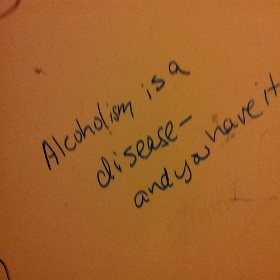 Alcoholism is a
disease-
and you have it